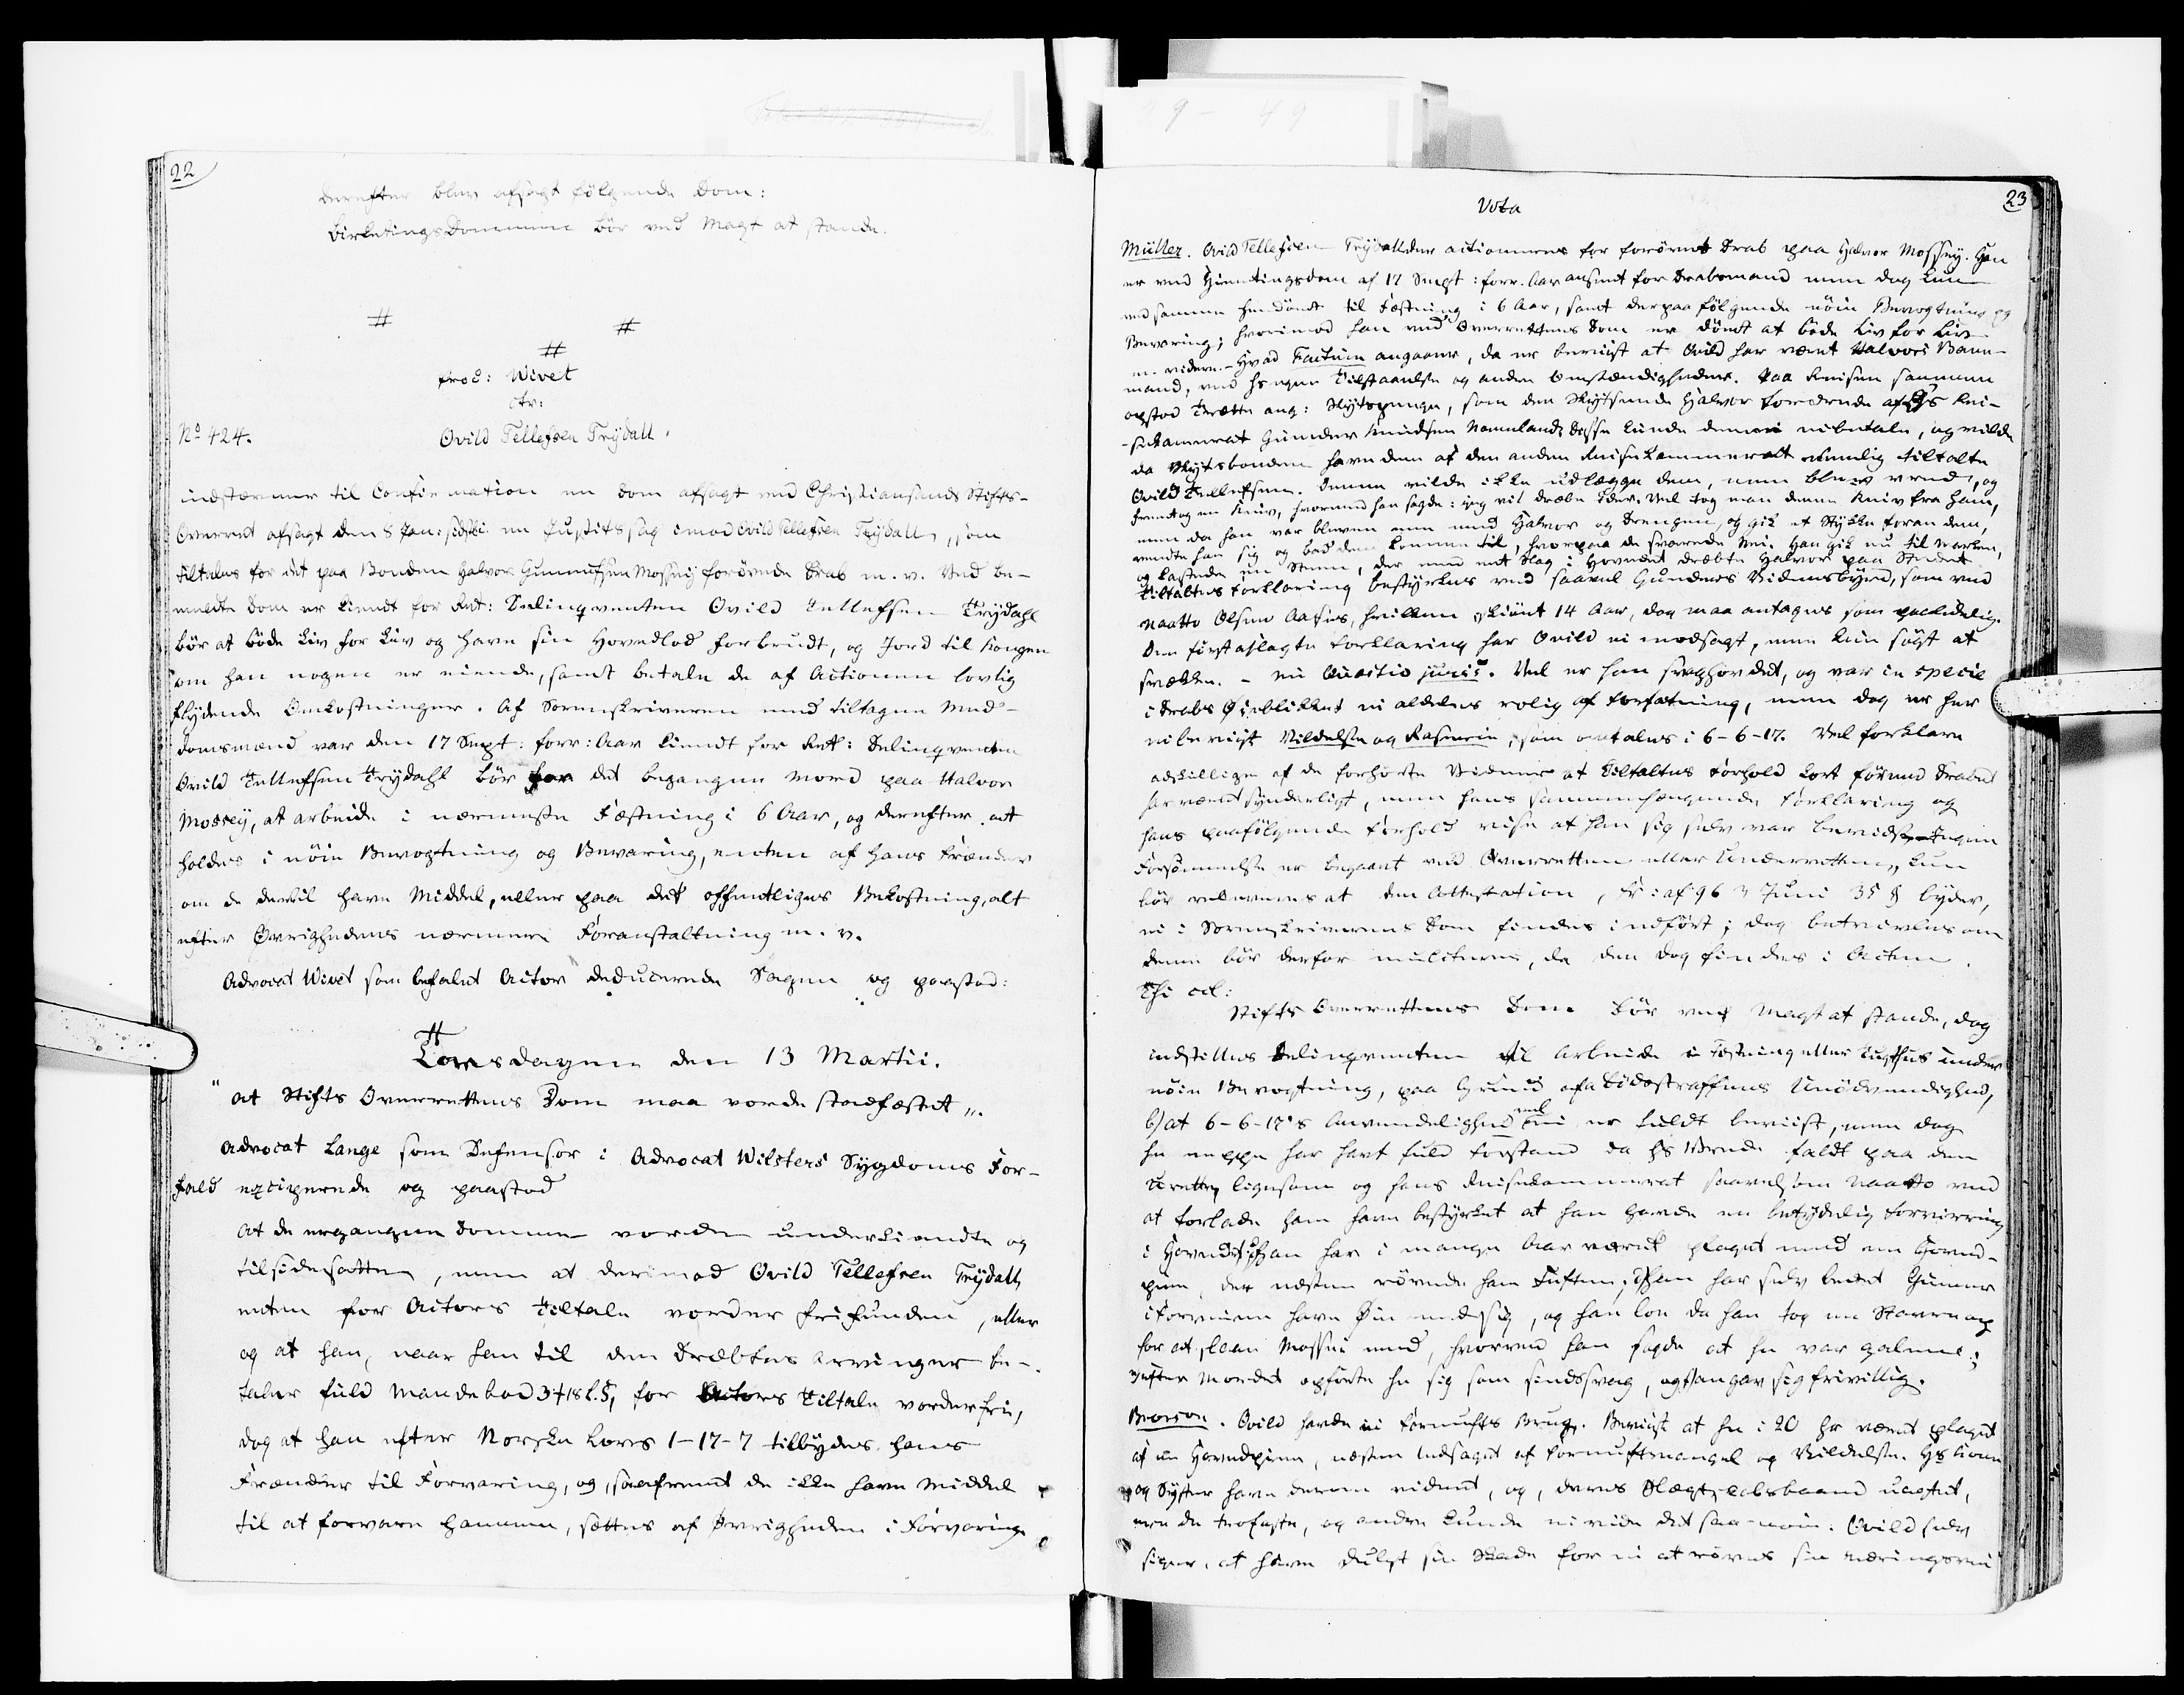 22
derefter blev afsagt følgende Dom:
Birketings Dommen bør ved Magt at stande.
#
#
#
Proc: Wivet
ctr:
No 424.
Ovild Tellefsen Trÿdall.
indstævner til Confirmation en Dom afsagt ved Christiansands Stifts-
Overret afsagt den 8 Jan: sidstl: en Justitssag imod Ovild Tellefsen Trÿdall, som
tiltales for det paa Bonden Halvor Gunnufsen Mossey forøvede Drab m. v. Ved be-
meldte Dom er kiendt for Ret: Delinqventen Ovild Tellefsen Trÿdahl
bør at bøde Liv for Liv og have sin Hovedlod forbrudt, og Jord til Kongen
om han nogen er eiende, samt betale de af Actionen lovlig
flydende Omkostninger. Af Sorenskriveren med tiltagne Med-
domsmænd var den 17 Sept: forr: Aar kiendt for Ret: Delinqventen
Ovild Tellefsen Trÿdahl bør for det begangne Mord paa Halvor
Mossey, at arbeide i nærmeste Fæstning i 6 Aar, og derefter at
holdes i nøie Bevogtning og Bevaring, enten af hans Frænder
om de dertil have Middel, eller paa det offentliges Bekostning, alt
efter Øvrighedens nærmere Foranstaltning m. v.
Advocat Wivet som befalet Actor deducerede Sagen og paastod:
Torsdagen den 13 Martii.
"at Stifts Overrettens Dom maa vorde stadfæstet".
Advocat Lange som Defensor i Advocat Wilsters Sygdoms For-
fald exciperede og paastod
At de ergangne Domme vorde underkiendte og
tilsidesatte, men at derimod Ovild Tellefsen Trÿdall,
enten for Actors Tiltale vorder frifunden, eller
og at han, naar han til den Dræbtes Arvinger be-
taler fuld Mandebod 3 + 18 L. S, for Actors Tiltale vorder fri,
dog at han efter Norske Lovs 1-17-7 tilbydes hans
Frænder til Forvaring, og, saafremt de ikke have Middel
til at forvare hannem, sættes af Øvrigheden i Forvaring
23
Vota
Müller. Ovild Tellefsen Trÿdall der actioneres for forøvet Drab paa Halvor Mossey. Han
er ved Hiemtingsdom af 17 Sept: forr. Aar anseet for Drabsmand men dog kun
ved samme hendømt til Fæstning i 6 Aar, samt derpaa følgende nøie Bevogtning og
Bevaring; hvorimod han ved Overrettens Dom er dømt at bøde Liv for Liv
m. videre. - Hvad Factum angaaer, da er beviist at Ovild har været Halvors Bane-
mand, ved hs egen Tilstaaelse og andre Omstændigheder. Paa Reisen sammen
opstod Trætte ang: Skydspenge, som den Skydsende Halvor fordrede af Hs Rei-
sekamerat Gunder Knudsen Nomeland; Disse kunde denne ei betale, og vilde
da Skydsbonden have dem af den anden Reisekammerat nemlig tiltalte
Ovild Tellefsen. Denne vilde ikke udlægge dem, men blev vred, og
fremtog en Kniv, hvormed han sagde: jeg vil dræbe Eder. Vel tog man denne Kniv fra ham,
men da han var bleven ene med Halvor og Drengen, og gik et Stykke foran dem,
vendte han sig og bad dem komme til, hvorpaa de svarede Nei. Han gik nu til Marken,
og kastede en Steen, der med eet Slag i Hovedet dræbte Halvor paa Stedet.
Tiltaltes Forklaring bestyrkes ved saavel Gunders Vidnesbyrd, som ved
Naatto Olsens Aasnes, hvilken skiønt 14 Aar, dog maa antages som paalidelig.
Den først aflagte Forklaring har Ovild ei modsagt, men kun søgt at
svække. - Nu Qvæstio juris. Vel er han svaghovdet, og var in specie
i Drabs Øieblikket ei aldeles rolig af Forfatning, men dog er her
ei beviist Vildelse og Raserie, som omtales i 6-6-17. Vel forklare
adskillige af de forhørte Vidner at Tiltaltes Forhold kort førend Drabet
har været synderligt, men hans sammenhængende Forklaring og
hans paafølgende Forhold vise at han sig selv var bevidst. Ingen
Forsømmelse er begaaet ved Overretten eller Underretten, kun
bør erindres at den Attestation, Fr: af 96 3 Juni 35 § byder,
ei i Sorenskriverens Dom findes indført; dog betvivles om
denne bør derfor mulcteres, da den dog findes i Acten.
Thi vot:
Stifts Overrettens Dom bør ved Magt at stande, dog
indstilles Delinqventen til Arbeide i Fæstning eller Tugthus under
nøie Bevogtning, paa Grund af a Dødsstraffens Unødvendighed,
b) at 6-6-17's Anvendelighed vel ei er fuldt beviist, men dog
hn neppe har havt fuld Forstand da hs Vrede faldt paa den
Urette, ligesom og hans Reisekammerat saavelsom Naatto ved
at forlade ham have bestyrket at han havde en betydelig Forvirring
i Hovedet; c) han har i mange Aar været plaget med en Hoved-
pine, der næsten rørede hans Fornuft; d) han har selv bedet Gunner
i Forveien have Øie med sig, og han loe da han tog en Staver op
for at slaae Mossei med, hvorved han sagde at hn var galen;
e) efter Mordet opførte hn sig som sindssvag, og f) angav sig frivillig.
Brorson. Ovild havde ei Fornufts Brug. Beviist at hn i 20 Aar været plaget
af en Hovedpine, næsten ledsaget af Fornuftmangel og Vildelse. Hs Kone
og Syster have derom vidnet, og, deres Slægtskabsbaand uagtet,
ere de trofaste, og andre kunde ei vide det saa nøie. Ovild selv
siger, at have dulgt sin Skade for ei at røves sin Næringsvei